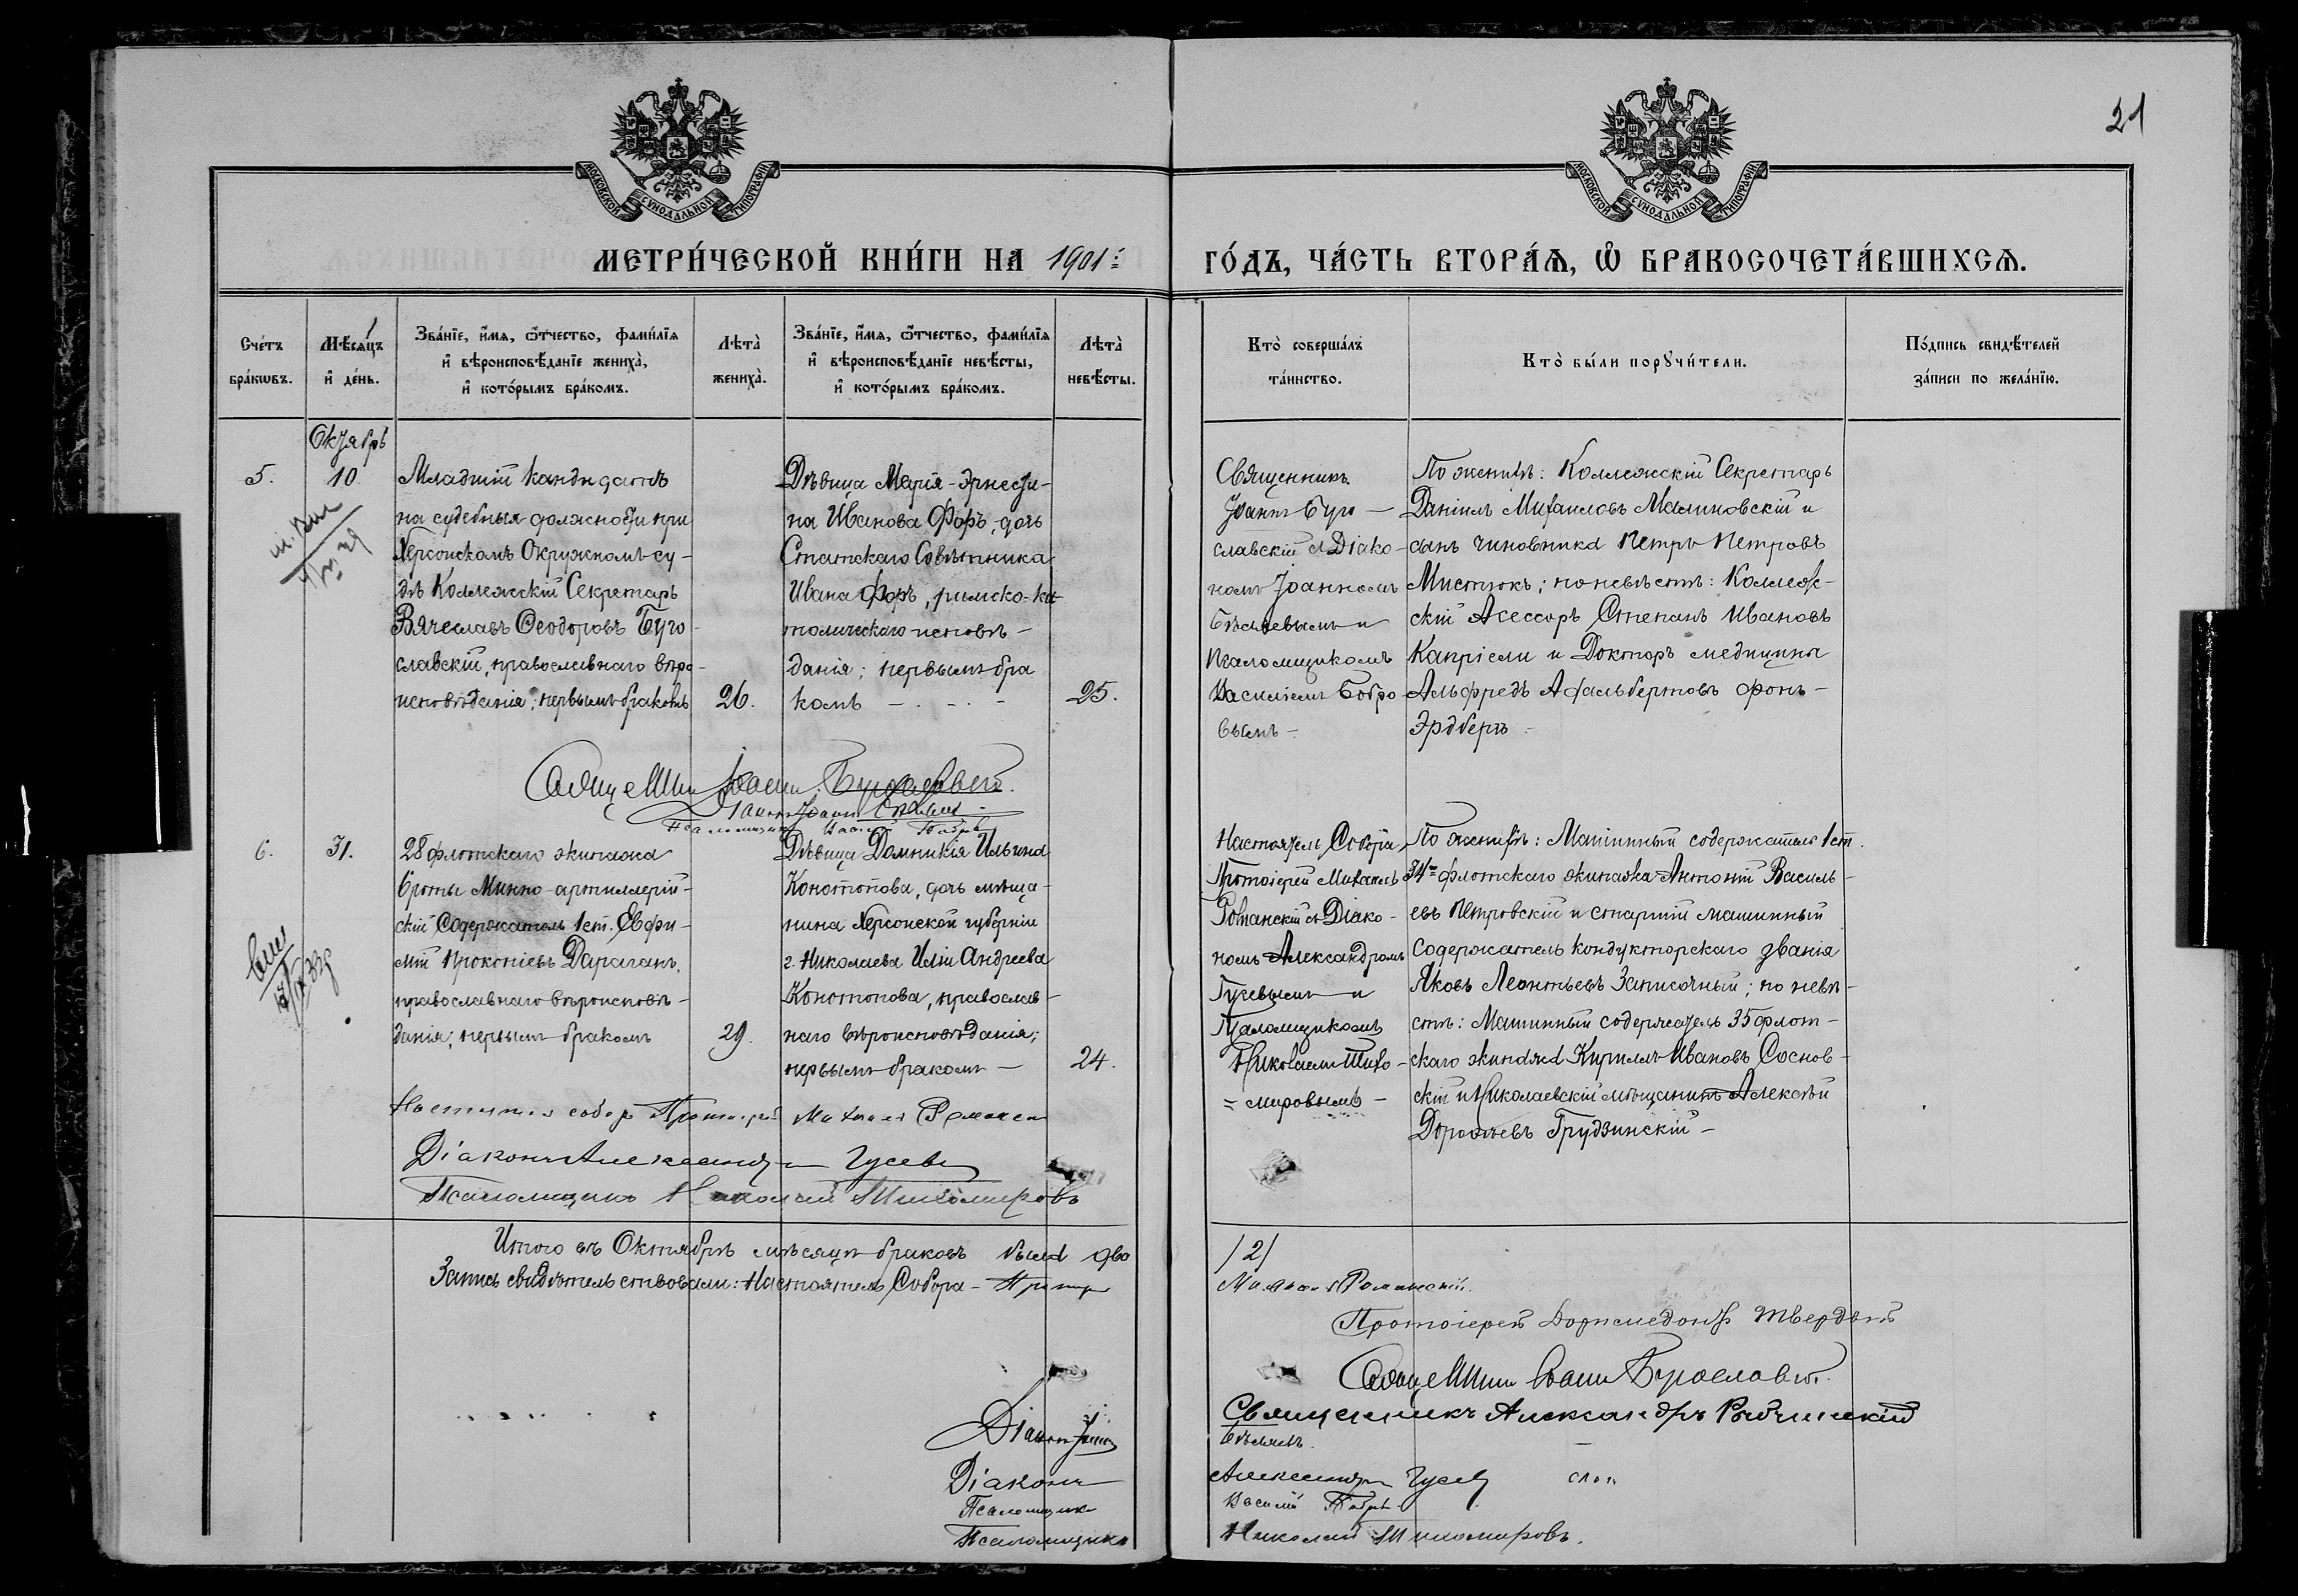 21
МОСКОВСКОЙ СУНОДАЛЬНОЙ ТИПОГРАФІИ
МОСКОВСКОЙ СУНОДАЛЬНОЙ ТИПОГРАФІИ
МЕТРИ́ЧЕСКОЙ КНИ́ГИ НА 1901:
ГО́ДЪ, ЧА́СТЬ ВТОРА́Ѧ, Ѡ҆ БРАКОСОЧЕТА́ВШИХСѦ.
Сче́тъ
бра́кѡвъ.
Мѣ́сѧцъ
и҆ де́нь.
Зва́нїе, и҆́мѧ, ѻ҆́тчество, фами́лїѧ
и҆ вѣроисповѣ́данїе жениха̀,
и҆ кото́рымъ бра́комъ.
Лѣта̀
жениха̀.
Зва́нїе, и҆́мѧ, ѻ҆́тчество, фами́лїѧ
и҆ вѣроисповѣ́данїе невѣ́сты,
и҆ кото́рымъ бра́комъ.
Лѣта̀
невѣ́сты.
Кто̀ соверша́лъ
та́инство.
Кто̀ бы́ли порꙋчи́тели.
По́дпись свидѣ́телей
за́писи по жела́нїю.
Октябрь
5.
10
Младшій кандидатъ
на судебныя должности при
Херсонскомъ Окружномъ су-
дѣ Коллежскій Секретарь
Вячеславъ Ѳеодоровъ Буго-
славскій, православнаго вѣро-
исповѣданія; первымъ бракомъ
26.
Дѣвица Марія-Эрнести-
на Иванова Форъ, дочь
Статскаго Совѣтника
Ивана Форъ, римско-ка-
толическаго исповѣ-
данія; первымъ бра
комъ
25.
Священникъ
Іоаннъ Буго-
славскій съ Діако-
номъ Іоанномъ
и
Псаломщикомъ
Василіемъ Бобро-
вымъ
По женихѣ: Коллежскій Секретарь
Даніилъ Михаиловъ Малиновскій и
сынъ чиновника Петръ Петровъ
Мистюкъ; по невѣстѣ: Коллеж-
скій Ассессоръ Степанъ Ивановъ
Капріели и Докторъ медицины
Альфредъ Адальбертовъ фонъ-
Эрдбергъ
Священникъ Іоаннъ Бугославскій.
Діаконъ Іоаннъ
Псаломщикъ Василій Бобровъ
6.
31.
28 флотскаго экипажа
6 роты Минно-артиллерій-
скій Содержатель 1 ст. Евфи-
мій Прокопіевъ Дараганъ,
православнаго вѣроисповѣ-
данія; первымъ бракомъ
29.
Дѣвица Домникія Ильина
Конотопова, дочь мѣща-
нина Херсонской губерніи
г. Николаева Иліи Андреева
Конотопова, православ-
наго вѣроисповѣданія;
первымъ бракомъ
24.
Настоятель Собора,
Протоіерей Михаилъ
Романскій съ Діако-
номъ Александромъ
Гусевымъ и
Псаломщикомъ
Николаемъ Тихо-
мировымъ
По женихѣ: Машинный содержатель 1 ст.
34го флотскаго экипажа Антоній Василь-
евъ Петровскій и старшій машинный
содержатель кондукторскаго званія
Яковъ Леонтьевъ Записочный; по невѣ-
стѣ: Машинный содержатель 35 флот-
скаго экипажа Кириллъ Ивановъ Соснов-
скій и Николаевскій мѣщанинъ Алексѣй
Дорофѣевъ Грудзинскій
Настоятель собора Протоіерей Михаилъ Романскій
Діаконъ Александръ Гусевъ
Псаломщикъ Николай Тихомировъ
Итого въ Октябрѣ мѣсяцѣ браковъ было два
/2/
Запись свидѣтельствовали: Настоятель Собора Протоіерей
Михаилъ Романскій.
Протоіерей Доримедонтъ Твердый
Священникъ Іоаннъ Бугославскій.
Священникъ Александръ
Діаконъ Іоаннъ
Діаконъ
Александръ Гусевъ
Псаломщикъ
Василій Бобровъ
Псаломщикъ
Николай Тихомировъ.